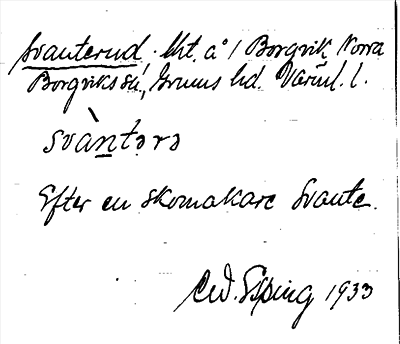 Svanterud. lht. å 1 Borgvik Norra
Borgviks sn, Grums hd. Värml. l.
svàntərə
Efter en skomakare Svante.
Ced. Esping 1933